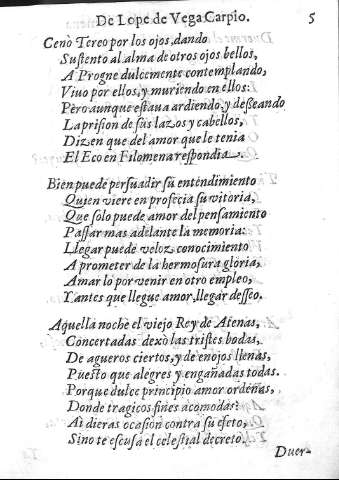 De Lope de Vega Carpio. 5
Cenò Tereo por los ojos, dando
Suſtento al alma de otros ojos bellos,
A Progne dulcemente contemplando,
Viuo por ellos, y muriendo en ellos:
Pèro aunque eſtaua ardiendo, y deſſeando
La priſion de ſus lazos y cabellos,
Dizen que del amor que le tenia
El Eco en Filomena reſpondia.
Bien puede perſuadir ſu entendimiento
Quien viere en profecia ſu vitoria,
Que ſolo puede amor del penſamiento
Paſſar mas adelante la memoria:
Llegar puede veloz conocimiento
A prometer de la hermoſura gloria,
Amar lo por venir en otro empleo,
Y antes que llegue amor, llegar deſſeo.
Aquella noche el viejo Rey de Atenas,
Concertadas dexò las triſtes bodas,
De agueros ciertos, y de enojos llenas,
Pueſto que alegres y engañadas todas.
Porque dulce principio amor ordenas,
Donde tragicos fines acomodas?
Ai dieras ocaſion contra ſu efeto,
Sino te eſcuſa el celeſtial decreto.
Duer-